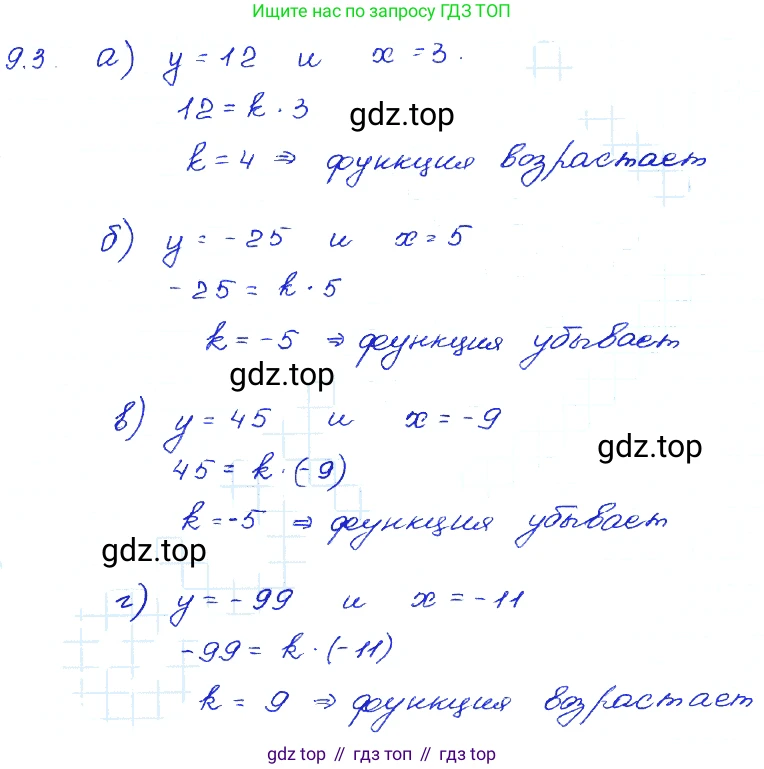 Ищите нас по запросу ГДЗ ТОП
9.3. а) y = 12 и x = 3.
12 = k · 3
gdz.top
k = 4 ⇒ функция возрастает
б) y = -25 и x = 5
-25 = k · 5
k = -5 ⇒ функция убывает
gdz.top
в) y = 45 и x = -9
gdz.top
45 = k · (-9)
k = -5 ⇒ функция убывает
gdz.top
г) y = -99 и x = -11
-99 = k · (-11)
k = 9 ⇒ функция возрастает
gdz top // гдз топ // gdz top